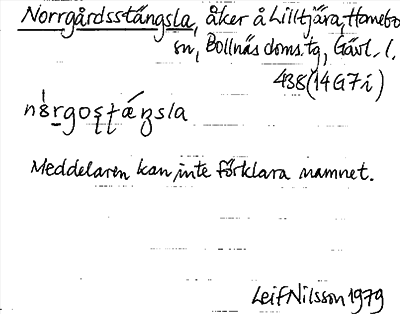 Norrgårdsstängsla, åker å Lilltjära, Hanebo
sn, Bollnäs doms.tg, Gävl. l.
438 (14 G 7 i)
Meddelaren kan inte förklara namnet.
Leif Nilsson 1979